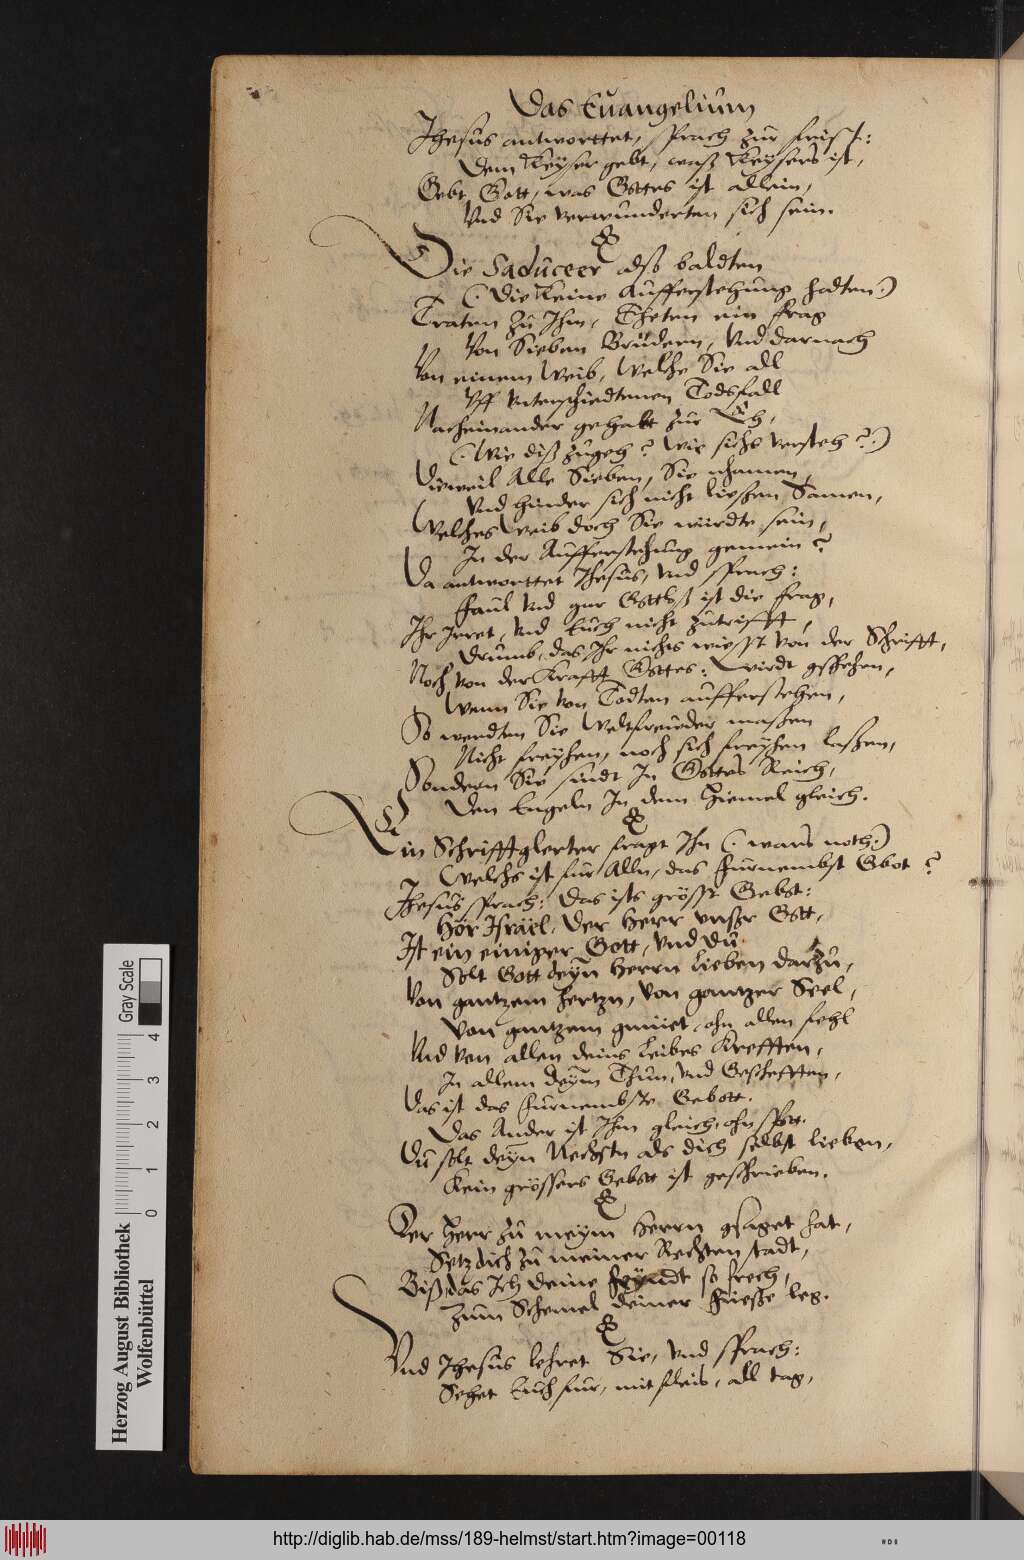 Das Euangelium
Jhesus antworttet, sprach zur frist:
Dem Keyser gebt, waß Keysers ist,
Gebt Gott, was Gottes ist allein,
Vnd Sie verwunderten sich sein.
Die Saduceer also baldten
(Die Keine Aufferstehung hadten)
Traten Zu Jhm, Theten ein frag
Von Sieben Brüdern, Vnd darnach
Von einem Weib, Welche Sie all
Vff vnterschiedtenen Todsfall
Nacheinander gehabt zur Eh,
(Wie diß zugeh? Wie sichs versteh?)
Dieweil Alle Sieben, Sie nhamen,
Vnd hinder sich nicht ließen Samen,
Welches Weib doch Sie würdte sein,
Jn der Aufferstehung gemein?
Da antworttet Jhesus, vnd sprach:
Faul vnd gar Gottloß ist die frag,
Jhr Jrret, vnd Euch nicht zutrifft,
Drumb, das Jhr nichts wiesst von der Schrifft,
Noch von der Krafft Gottes: Wirdt gschehen,
Wenn Sie von Todten aufferstehen,
So werdten Sie Weltfreuder maßen
Nicht freyhen, noch sich freyhen laßen,
Sondern Sie sindt Jn Gottes Reich,
Den Engeln Jn dem Hiemel gleich.
Ein Schrifftglerter fragt Jhn (wars noth)
Welchs ist fur Alln, das Furnembst Gbot?
Jhesus sprach: das ists grösst Gebot:
Hör Jsräel, Der Herr vnßr Gott,
Jst ein einiger Gott, vnd du
Solt Gott deyn Herrn lieben darzu,
Von gantzem Hertzn, von gantzer Seel,
Von gantzem gmüet, ohn allen fehl
Vnd von allen deins Leibes Krefften,
Jn allem deym Thun, vnd Geschefften,
Das ist das Furnembste Gebott.
Das Ander ist Jhm gleich, ohn spott.
Du solt deyn Nechstn als dich selbst lieben,
Kein grössers Gebott ist geschrieben.
Der Herr zu meym Herrn gsaget hat,
Setz dich zu meiner Rechten stadt,
Biß, das Jch deine Feyndt so frech,
Zum Schemel deiner Füeße leg.
Vnd Jhesus lehret Sie, vnd sprach:
Sehet Euch fur, mit fleis, all tag,
Herzog August Bibliothek
Wolfenbüttel
0 1 2 3 4
Gray Scale
http://diglib.hab.de/mss/189-helmst/start.htm?image=00118